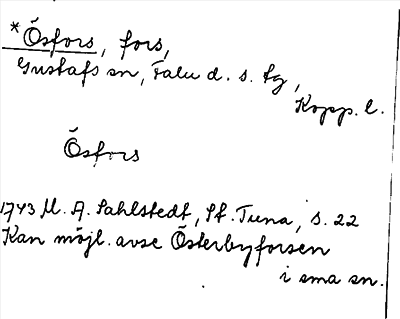 *Ösfors, fors,
Gustafs sn, Falu d. s. tg,
Kopp. l.
Ösfors
1743 M. A. Sahlstedt, St. Tuna, s. 22
Kan möjl. avse Österbyforsen
i sma sn.